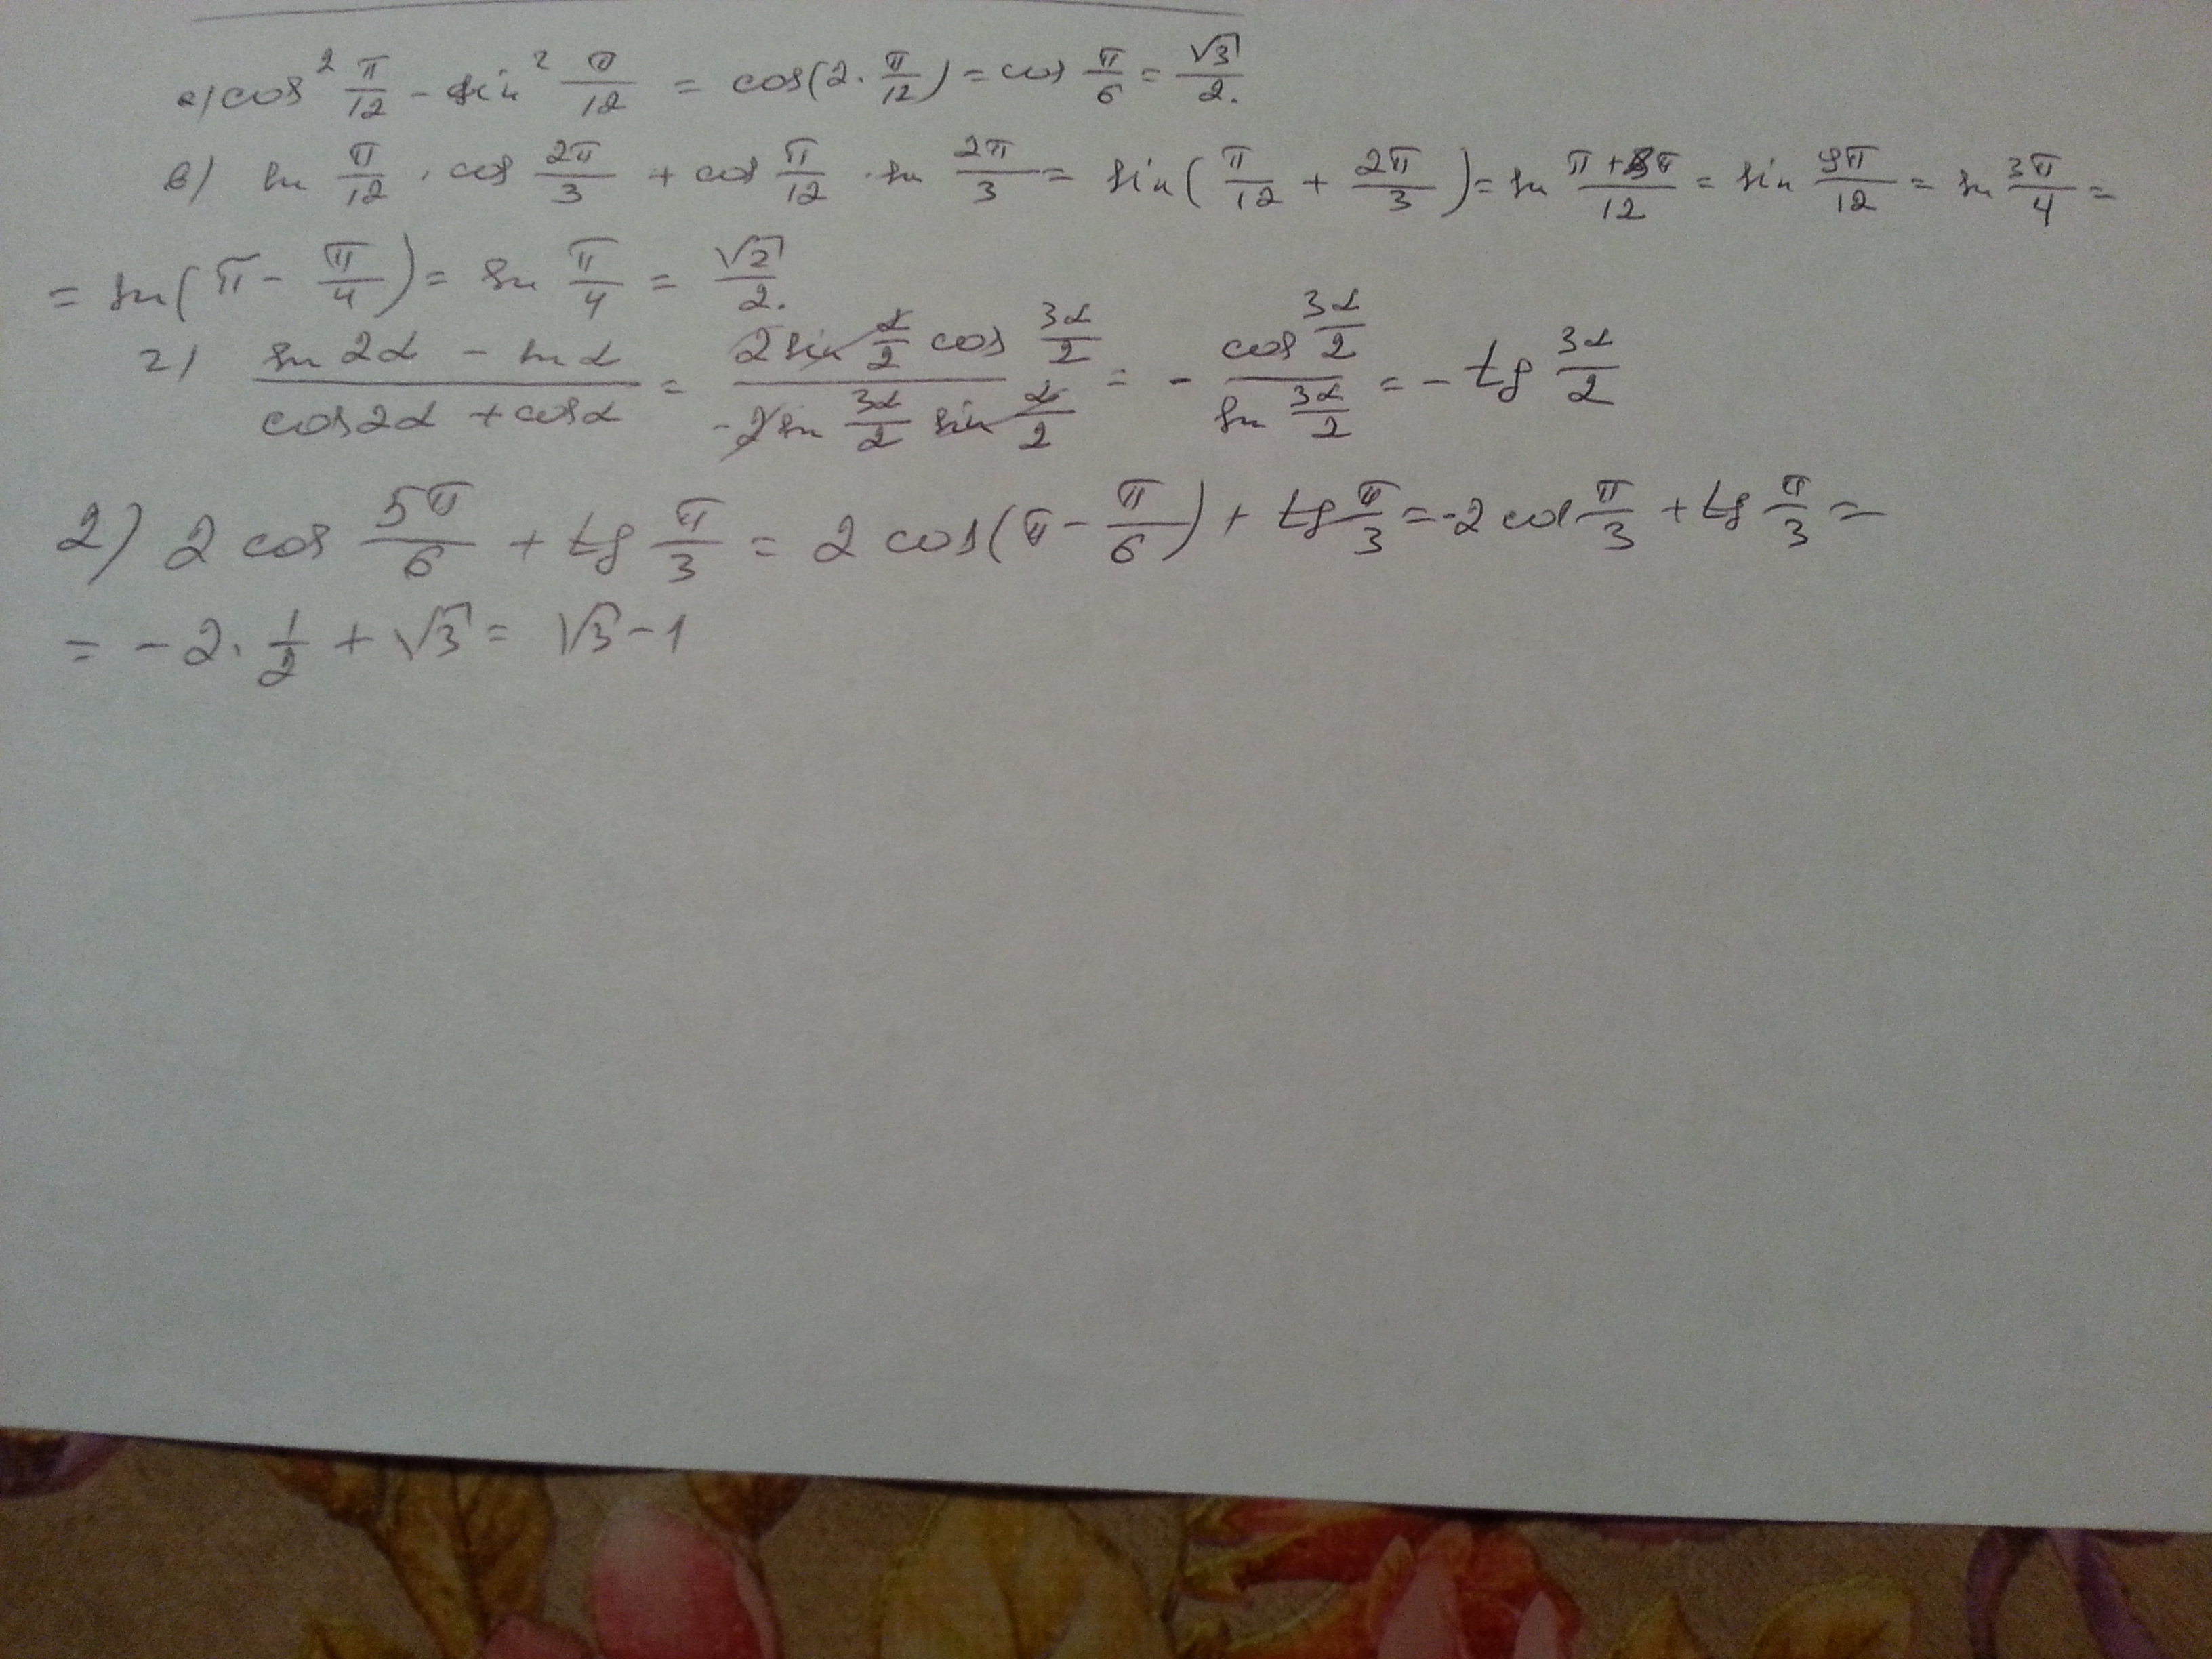 а) cos² π/12 - sin² π/12 = cos(2 · π/12) = cos π/6 = √3/2.
в) sin π/12 · cos 2π/3 + cos π/12 · sin 2π/3 = sin(π/12 + 2π/3) = sin (π+8π)/12 = sin 9π/12 = sin 3π/4 =
= sin(π - π/4) = sin π/4 = √2/2.
г) (sin 2α - sin α)/(cos 2α + cos α) = (2 sin α/2 cos 3α/2)/(-2 sin 3α/2 sin α/2) = - (cos 3α/2)/(sin 3α/2) = - tg 3α/2
2) 2 cos 5π/6 + tg π/3 = 2 cos(π - π/6) + tg π/3 = -2 cos π/3 + tg π/3 =
= -2 · 1/2 + √3 = √3 - 1